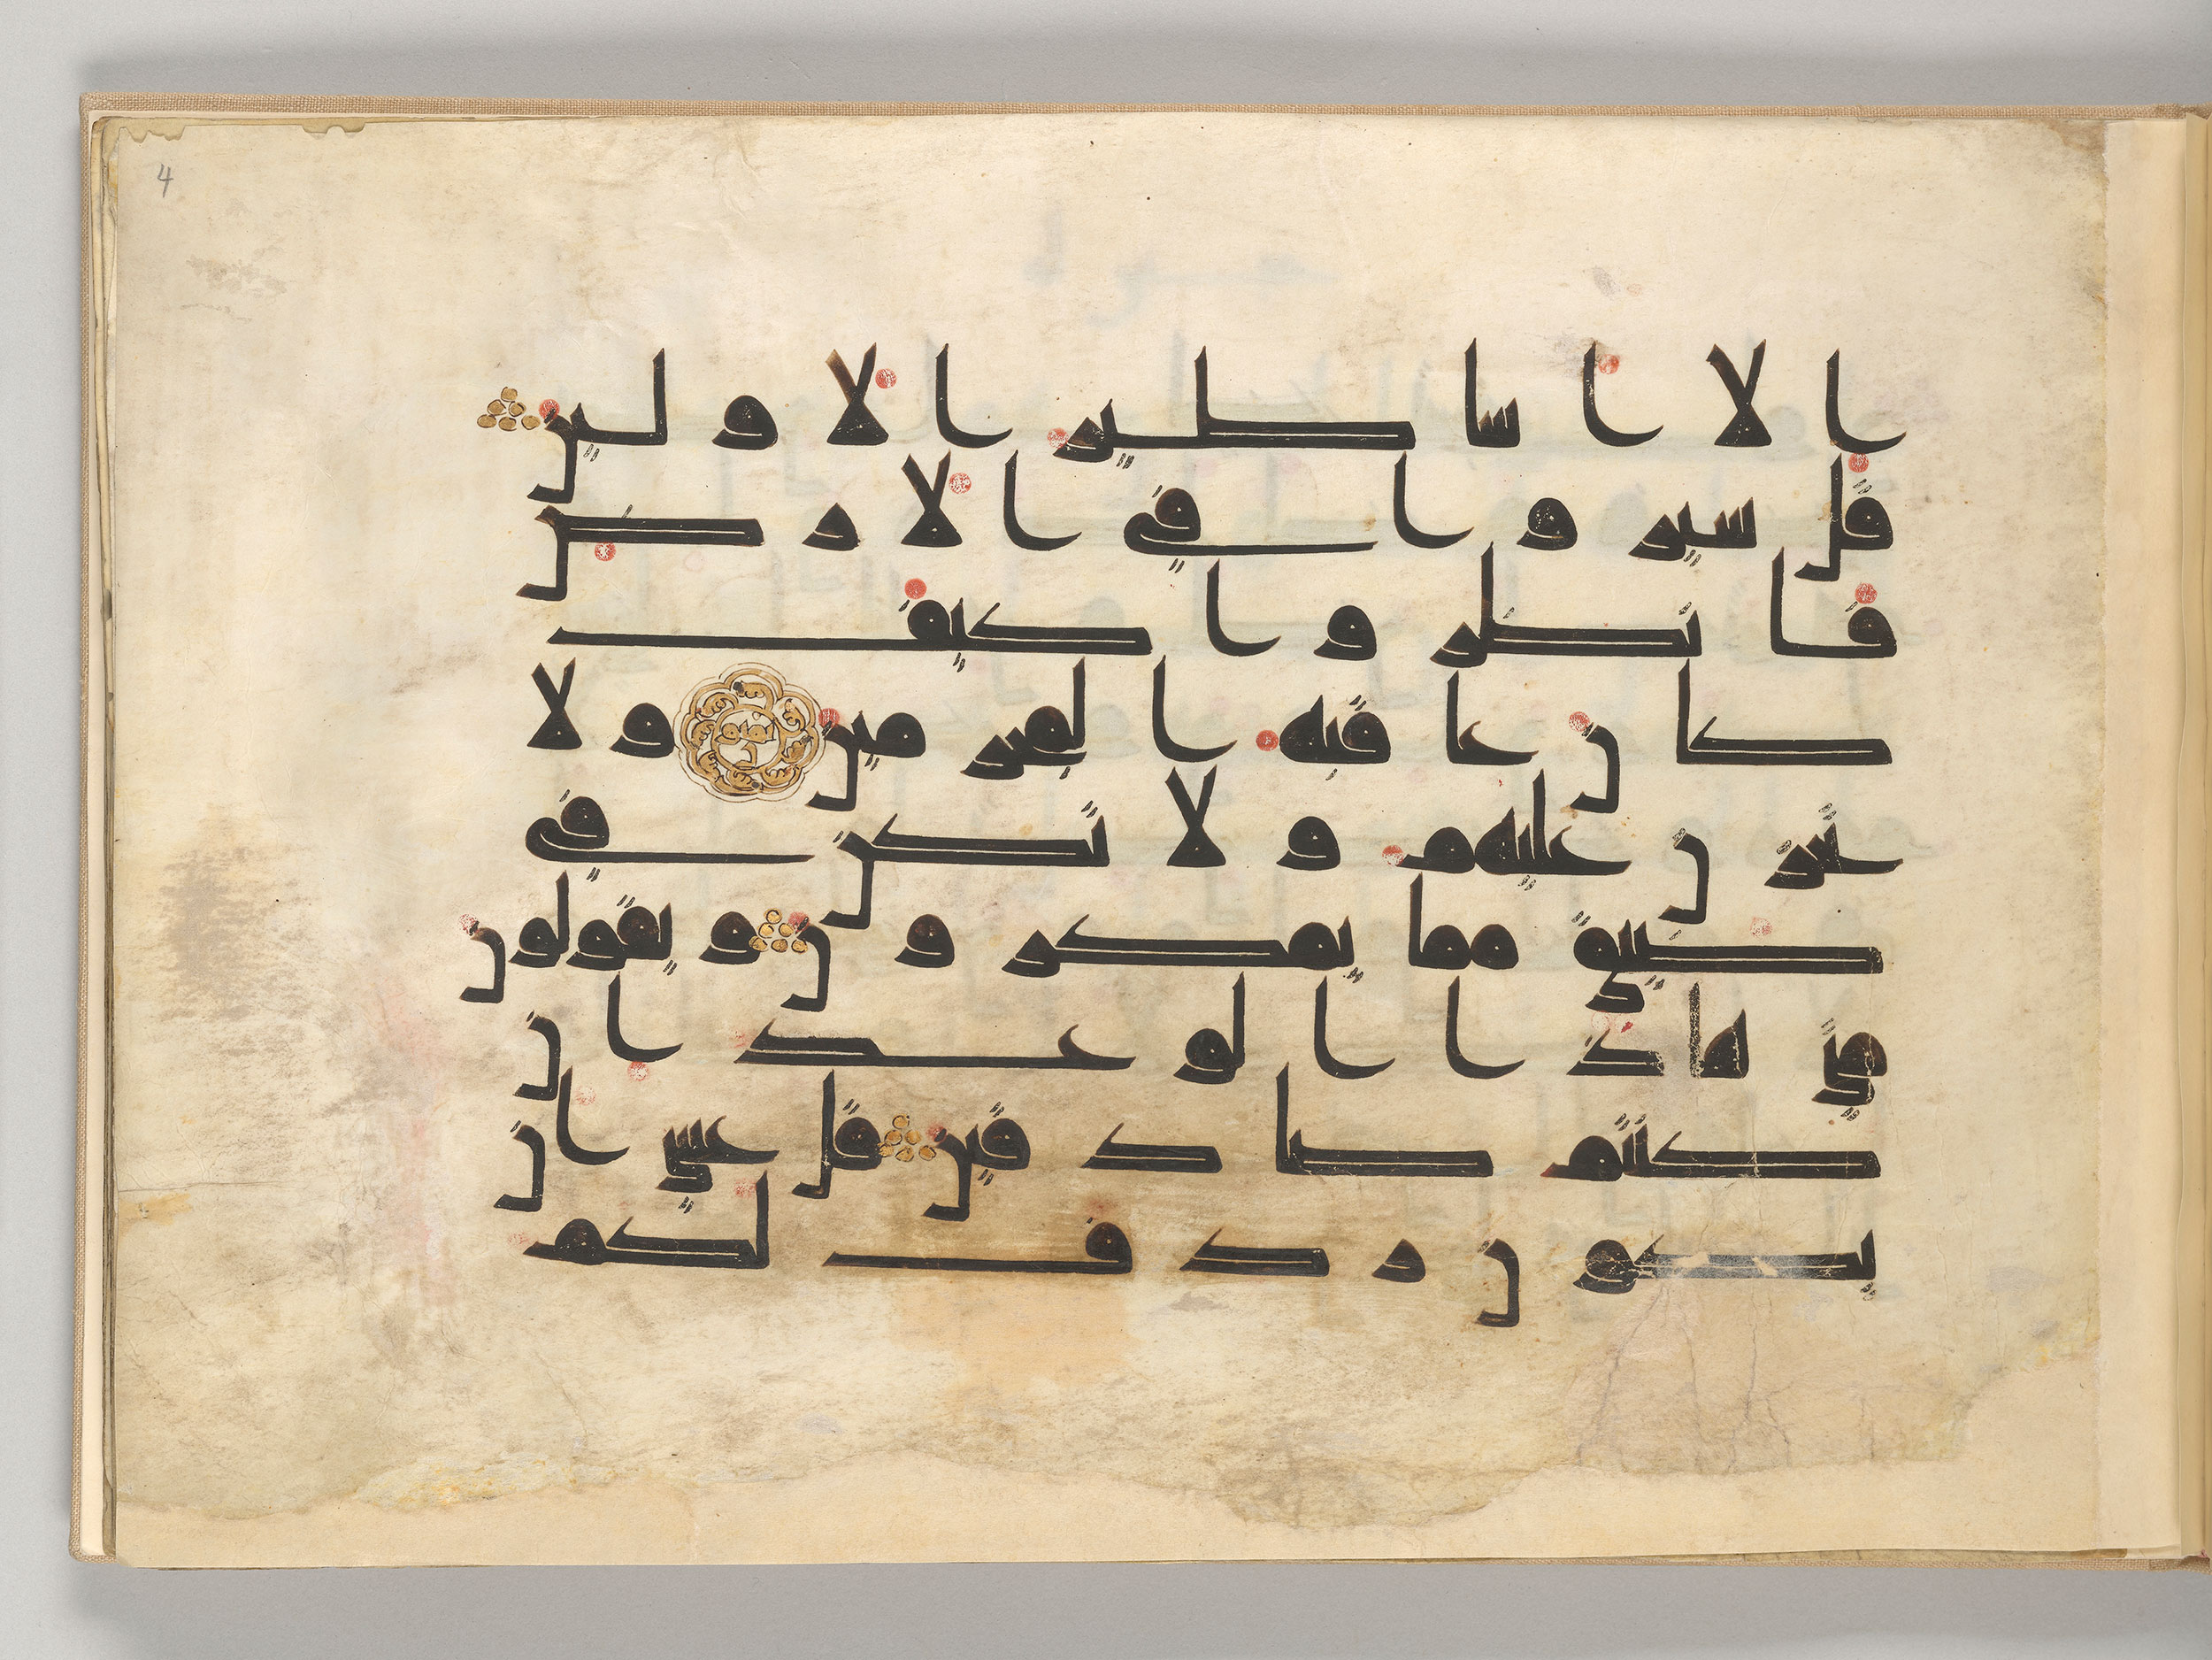 4
الا اساطير الاولين
قل سيروا في الارض
فانظروا كيف
كان عاقبه المجرمين ولا
تحزن عليهم ولا تكن في
ضيق مما يمكرون ويقولون
متى هاذا الوعد ان
كنتم صادقين قل عسى ان
يكون ردف لكم